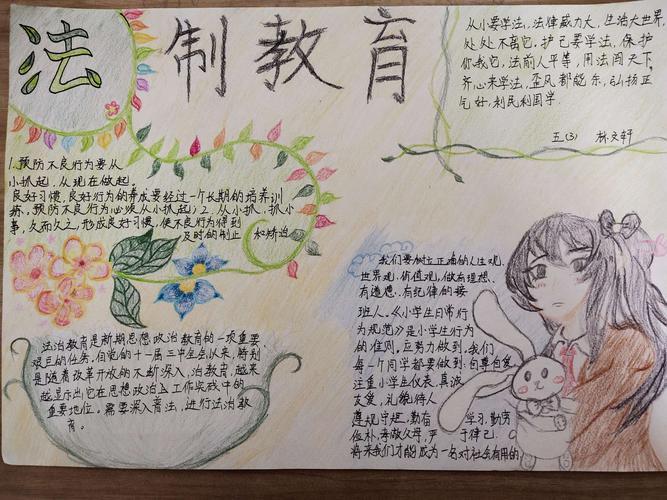 法制教育
从小要学法，法律威力大，生活大世界，
处处不离它，护己要学法，保护
你我它，法前人平等，用法闯天下，
齐心来学法，歪风都能东，弘扬正
气好，利民利国学
五(3) 林文轩
1.预防不良行为要从
小抓起，从现在做起。
良好习惯，良好行为的养成要经过一个长期的培养训
练，预防不良行为心须从小抓起；2.从小抓，抓小
事，久而久之，形成良好习惯，使不良行为得到
及时的制止 和矫治
我们要树立正确的人生观，
世界观，价值观，做有理想、
有道德、有纪律的接
班人。《小学生日常行
为规范》是小学生行为
的准则。应努力做到。我们
每一个同学都要做到：自尊自爱
注重小学生仪表，真诚
友爱，礼貌待人
遵规守纪，勤奋 学习，勤劳
俭朴，孝敬父母，严 于律己，
将来我们才能成为一名对社会有用的
法治教育是新期思想政治教育的一项重要
艰巨的任务。自党的十一届三中全会以来，特别
是随着改革开放的不断深入，治教育，越来
越显示出它在思想政治工作实践中的
重要地位。需要深入普法，进行法治教
育。